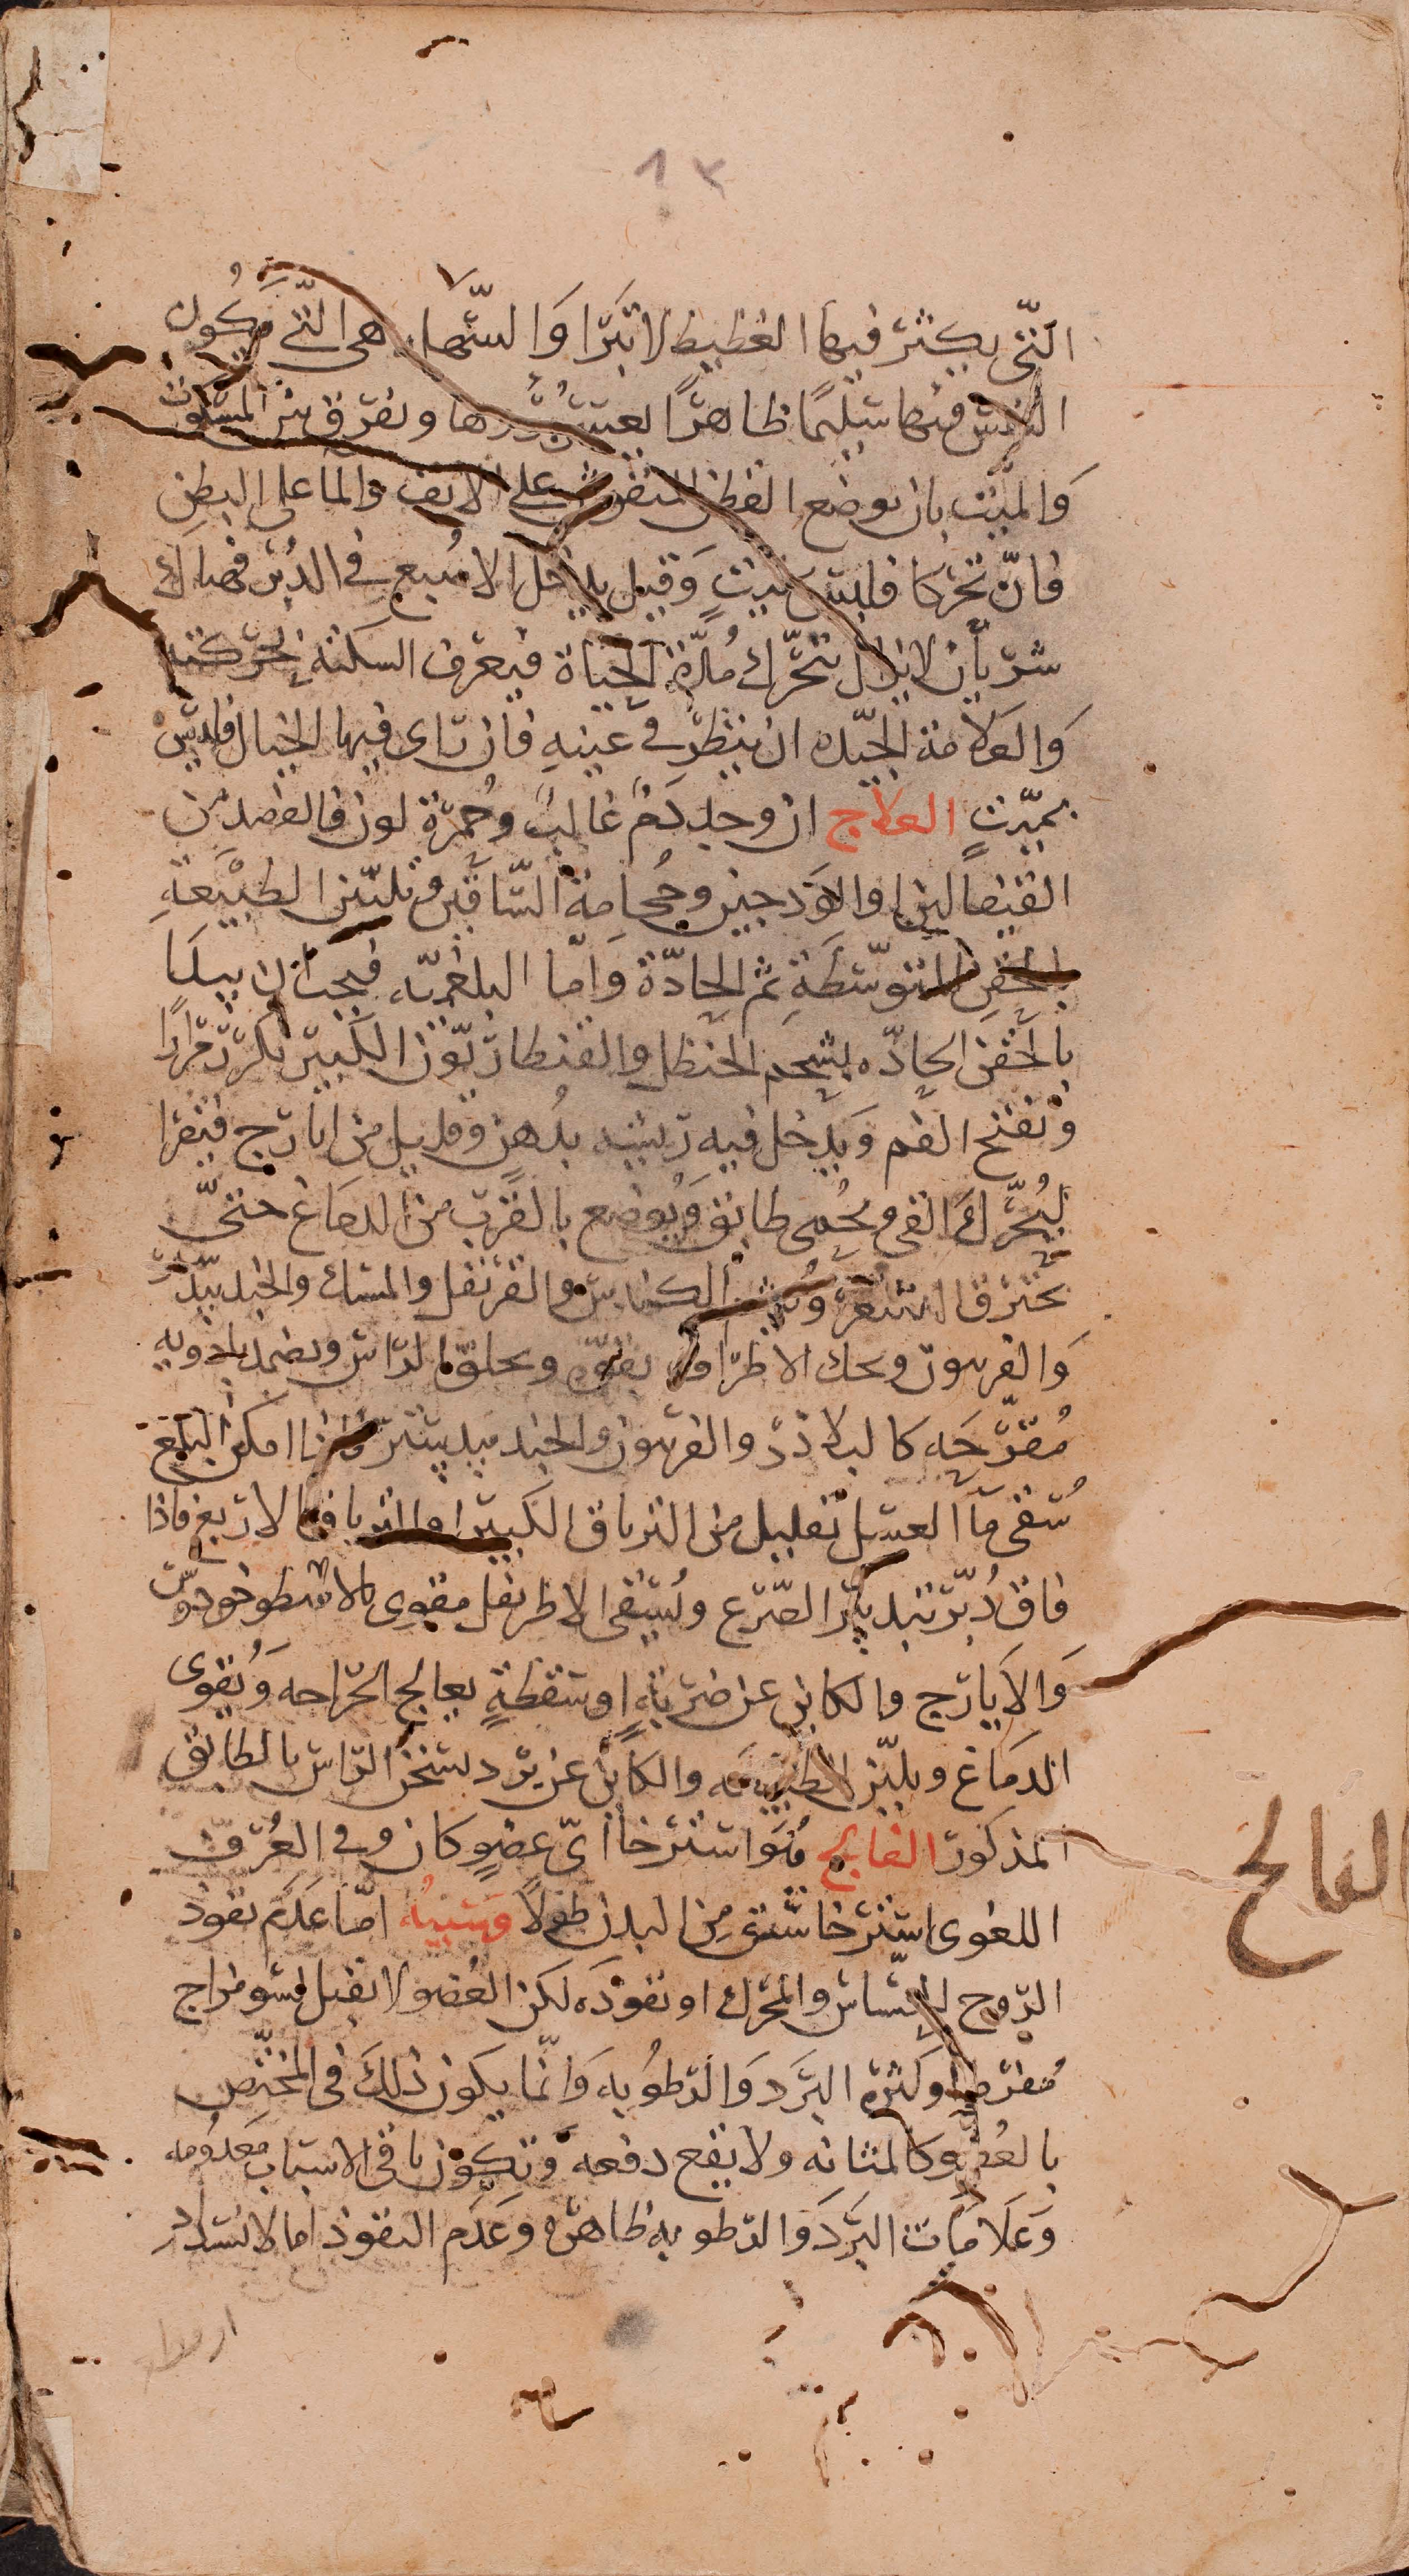 ١٣
التي يكثر فيها الغطيط لا تبرا والسهله هي التي يكون
النفس فيها سليمًا ظاهرًا لعسر برؤها ويفرق بين المسكوت
والميّت بان يوضع القطن المنفوش على الانف والما على البطن
فانّ تحركا فليس بميتٍ وقيل يدخل الاصبع في الدبر فهناك
شريان لا يزال يتحرّك مدّة الحياة فيعرف السكته بحركته
والعلامة الجيّده ان ينظر في عينيه فان رأى فيها الخيال فليس
بميّتٍ العلاج ان وجد دم غالب وحمرة لون فالفصد من
القيفالين او الاودجين وحجامة الساقين وتليين الطبيعة
بالحقن المتوسّطة ثم الحادّة وامّا البلغميّه فيجب ان يبدا
بالحقن الحادّه بشحم الحنظل والقنطاريّون الكبير تكرر مرارًا
ويفتح الفم ويدخل فيه ريشه بدهن وقليل من ايارج فيقرا
ليُحرّك القي ويحمى طابق ويوضع بالقرب من الدماغ حتّى
يحترق الشعر الكندس والقرنفل والمسك والجندبيدستر
والفربيون ويحك الاطراف بقوّه ويحلق الراس ويضمد بادويه
مقرّحه كالبلادر والفربيون والجندبيدستر فاذا امكن البلع
سُقي ما العسل بقليل من الترياق الكبير او الترياق الاربع فاذا
فاق دُبّر بتدبير الصّرع ويُسقى الاطريفل مقوى بالاسطوخودوس
والايارج والكاين عن ضربةٍ او سقطةٍ يعالج الجراحه ويُقوى
الدماغ ويليّن الطبيعه والكاين عن برد يسخن الراس بالطابق
المذكور الفالج هو استرخا ايّ عضوٍ كان وفي العُرف
اللغوى استرخا شق من البدن طولًا وسببه امّا عدم نفوذ
الروح الحسّاس والمحرك او نفوذه لكن العضو لا يقبل لسو مزاج
مفرط او كثره البرد والرطوبه وانّما يكون ذلك في المختص
بالعضو كالمثانه ولا يقع دفعه وتكون باقي الاسباب معدومه
وعلامات البرد والرطوبه ظاهره وعدم النفوذ اما لانسداد
الفالج